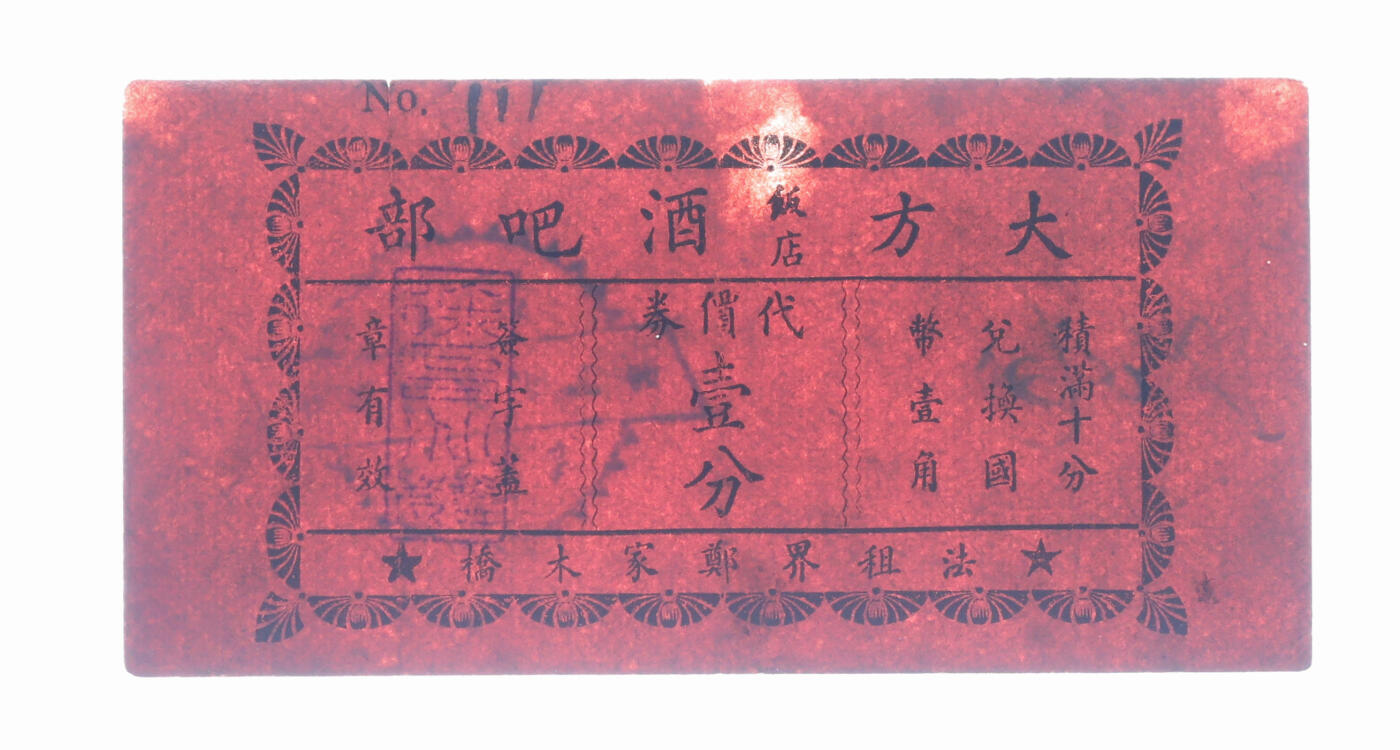 No. 111
大方飯店酒吧部
積滿十分
兌換國
幣壹角
代價券
壹分
簽字蓋
章有效
★法租界鄭家木橋★